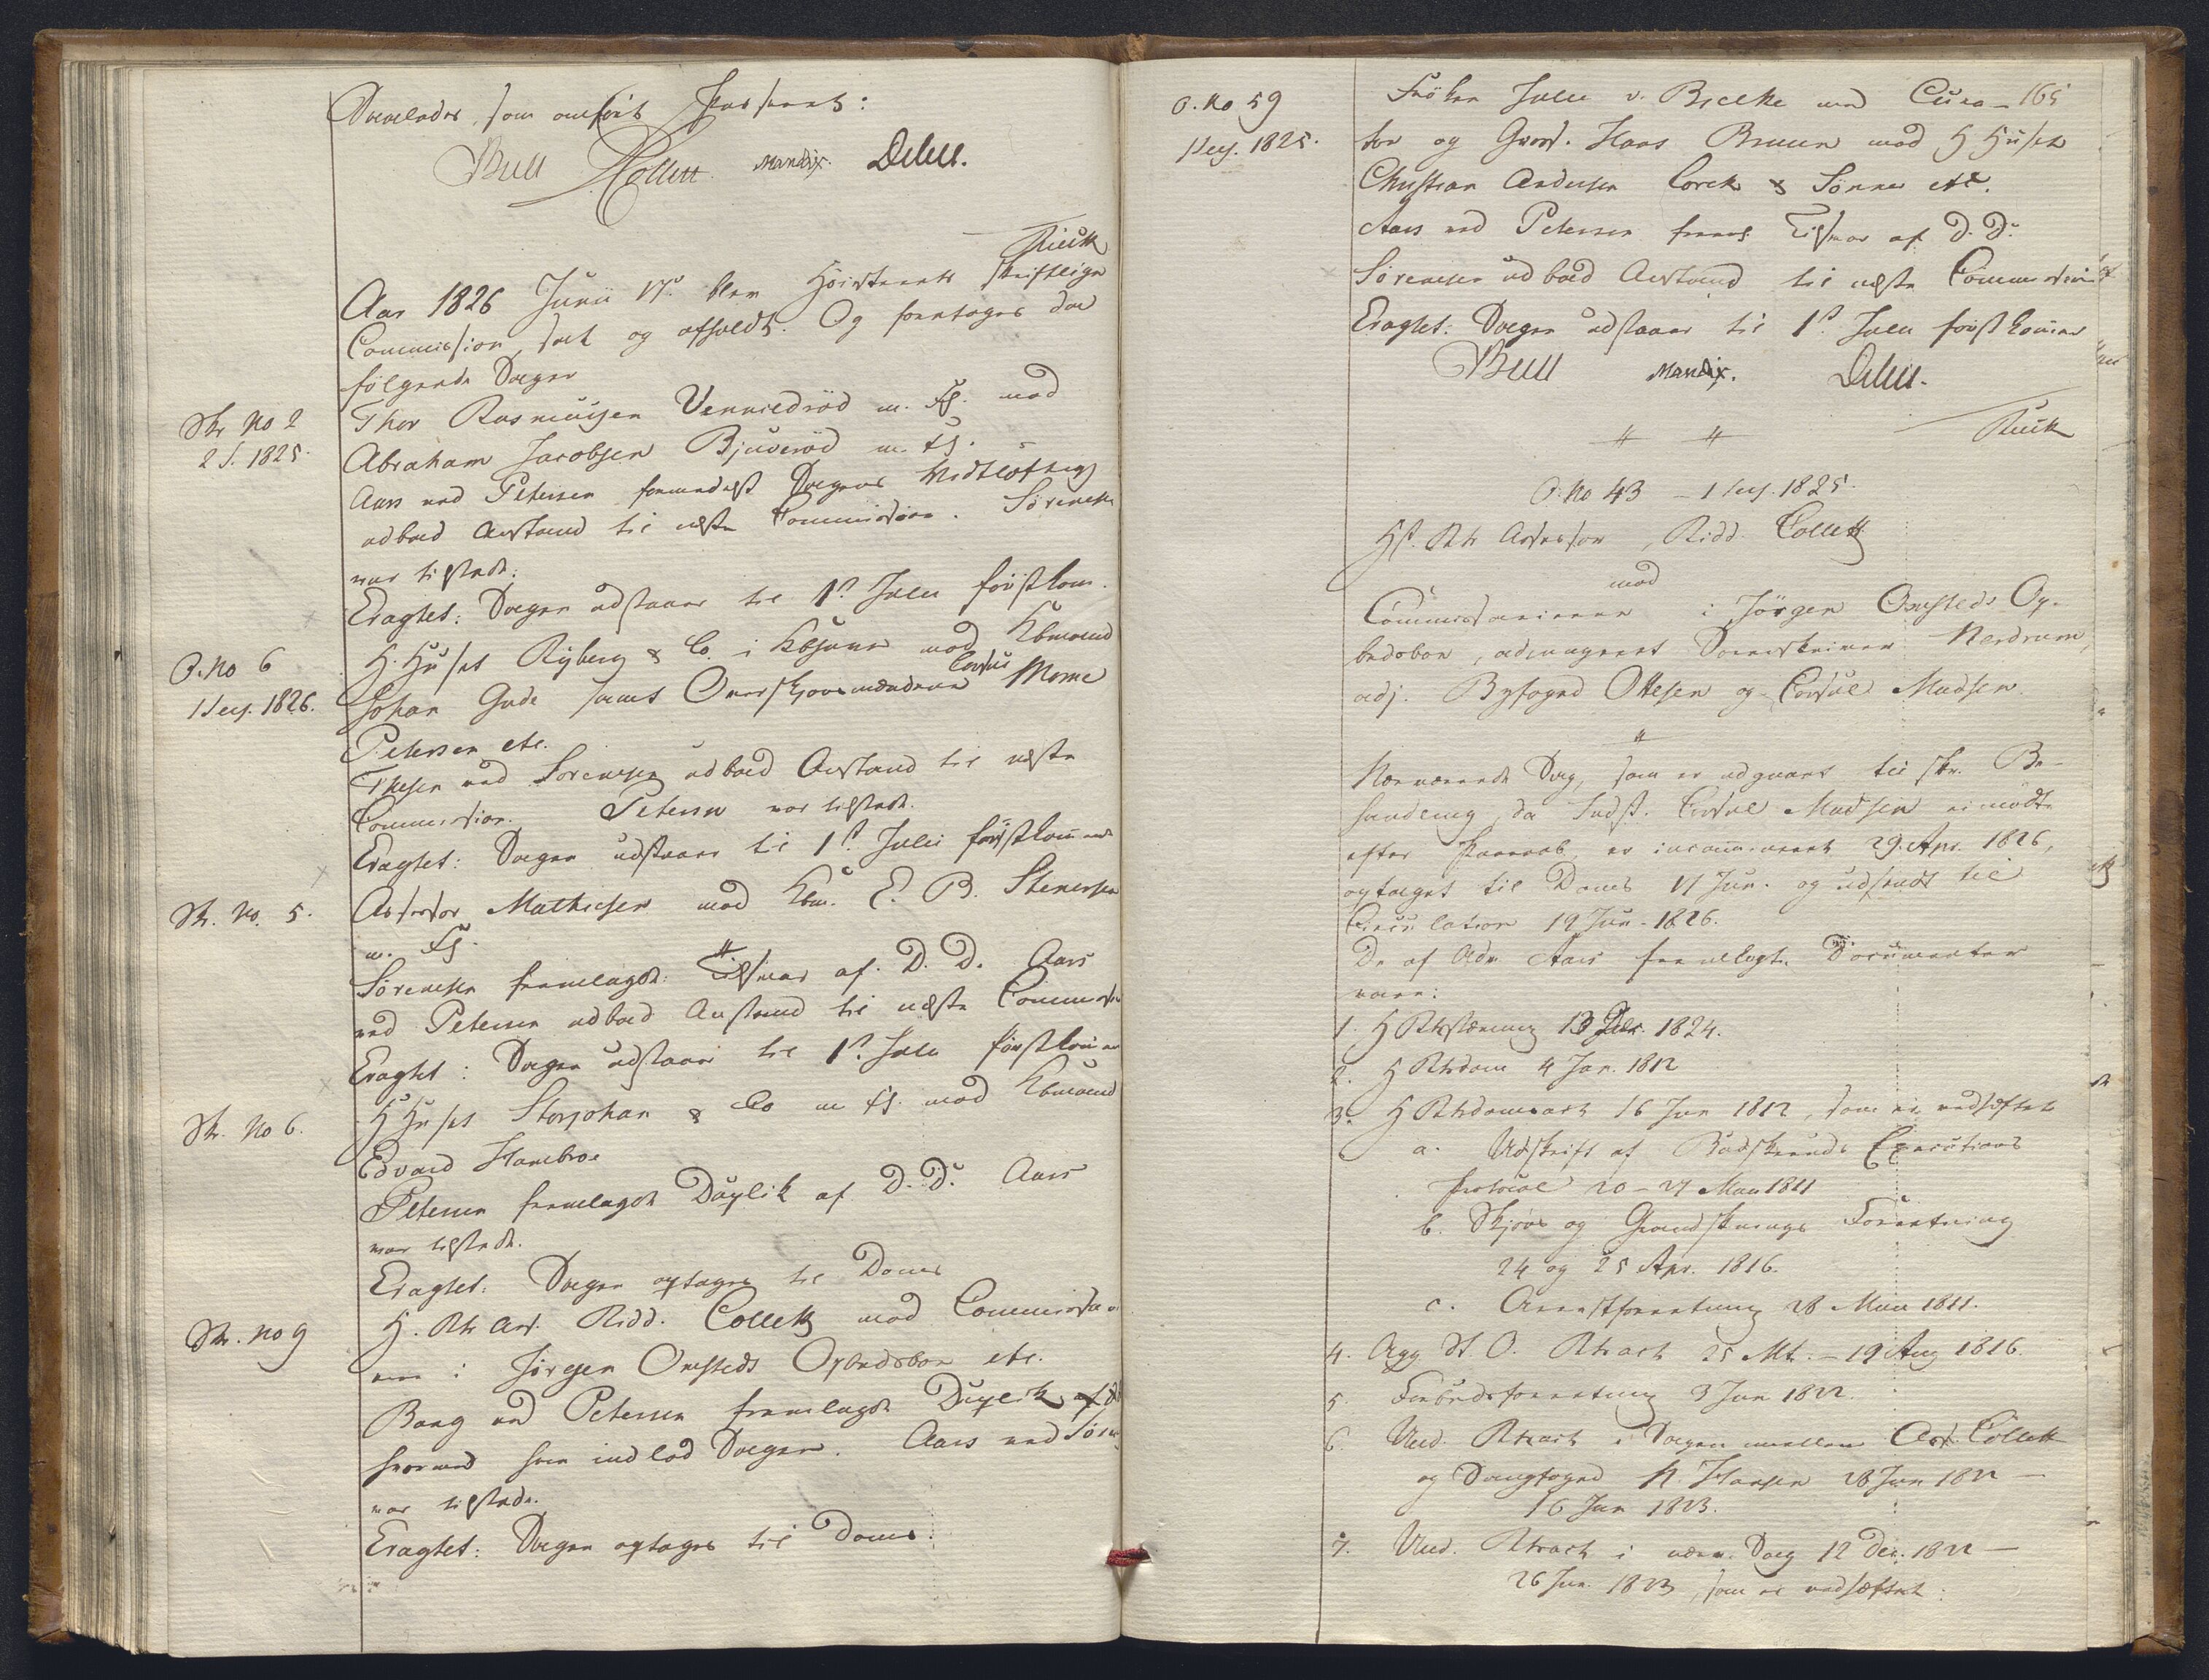 Saaledes, som anført passeret:
Bull Collett Mandix. Debes.
Rieck
Aar 1826 Junii 17de blev Høiesterets skriftlige
Commission sat og afholdt. Og foretoges da
følgende Sager
Skr No 2
2 S. 1825.
Thor Rasmussen Venniedrød m. fl. mod
Abraham Jacobsen Bjuverød m. fl. -
Aars ved Petersen formedelst Sagens Vidtløftigh
udbad Anstand til næste Commission. Sørensen
var tilstede.
Eragtet: Sagen udstaaer til 1ste Julii førstkom.
O. No 6
1 Sess. 1826.
H. Huset Ryberg & Co. i Kbhavn mod Kbmand
Johan Gude samt Overskjønsmændene Consul Morne
Petersen etc.
Thesen ved Sørensen udbad Anstand til næste
Commission. Petersen var tilstede.
Eragtet: Sagen udstaaer til 1ste Julii førstkommende
Skr. No. 5.
Assessor Mathiesen mod Kbm. E. B. Stenersen
m. fl.
Sørensen fremlagde Tilsvar af D. D. Aars
ved Petersen udbad Anstand til næste Commission
Eragtet: Sagen udstaaer til 1ste Julii førstkommende
Skr. No 6.
H Huset Storjohan & Co m fl. mod Kbmand
Edvard Hambroe
Petersen fremlagde Duplik af D. D. Aars
var tilstede.
Eragtet: Sagen optages til Doms
Skr. No 9
H. Rts Ass. Ridd. Collett mod Commissarier
ne i Jørgen Omsteds Opbudsboe etc.
Bang ved Petersen fremlagde Duplik af
hvormed han indlod Sagen. Aars ved Sørens
var tilstede.
Eragtet: Sagen optages til Doms.
165
O. No 59
1 Sess. 1825.
Frøken Julie v. Brelke med Cura-
tor og Gross. Hans Bruun mod H Huset
Christian Andersen Lorck & Sønner etc.
Aars ved Petersen freml. Tilsvar af D. D.
Sørensen udbad Anstand til næste Commission
Eragtet: Sagen udstaaer til 1ste Julii førstkommende
Bull Mandix. Debes.
Rieck
O. No 43 - 1 Sess. 1825.
Hst. Rts Assessor, Ridd. Collett
mod
Commissarierne i Jørgen Omsteds Op-
budsboe, administ Sorenskriver Nerdrum,
adj. Byfoged Ottesen og Consul Madsen.
Nærværende Sag, som er udgaaet til skr. Be-
handling, da Indst. Consul Madsen ei mødte
efter Paaraab, er incammineret 29. Apr. 1826,
optaget til Doms 17 Jun. og udsendt til
Circulation 19 Jun. 1826.
De af Adv. Aars fremlagte Documenter
vare:
1. H Rtsstævning 13 Dec. 1824.
2. H Rtsdom 4 Jan. 1812
3. H Rtsdomsact 16 Jun 1812, som er vedhæftet
a. Udskrift af Budskeruds Executions
protocol 20 - 27 Mai 1811
b. Skjøns og Grandsknings Forretning
24 og 25 Apr. 1816.
c. Arrestforretning 28 Mai 1811.
4. Agg St. O. Rtsact 25 Mts. - 19 Aug 1816.
5. Forbudsforretning 3 Jun 1822.
6. Und. Rtsact i Sagen imellem Ass. Collett
og Sougfoged N. Hansen 28 Jun 1822 -
16 Jun 1823.
7. Und. Rtsact i Sag 12 Dec. 1822 -
26 Jun. 1823, som er vedhæftet: